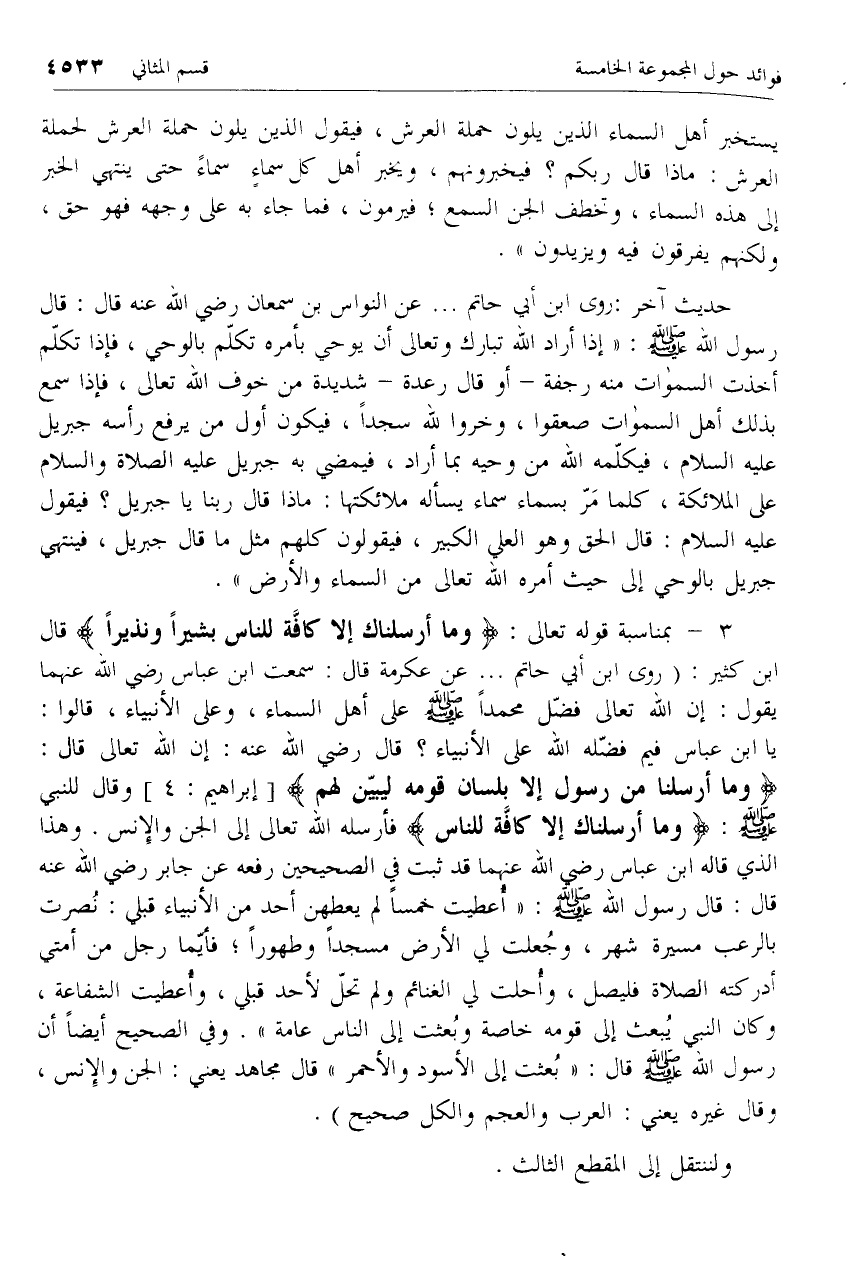 فوائد حول المجموعة الخامسة قسم المثاني ٤٥٣٣
يستخبر أهل السماء الذين يلون حملة العرش ، فيقول الذين يلون حملة العرش لحملة
العرش : ماذا قال ربكم ؟ فيخبرونهم ، ويخبر أهل كل سماءٍ سماءً حتى ينتهي الخبر
إلى هذه السماء ، وتخطف الجن السمع ؛ فيرمون ، فما جاء به على وجهه فهو حق ،
ولكنهم يفرقون فيه ويزيدون » .
حديث آخر :روى ابن أبي حاتم ... عن النواس بن سمعان رضي الله عنه قال : قال
رسول الله ﷺ : « إذا أراد الله تبارك وتعالى أن يوحي بأمره تكلّم بالوحي ، فإذا تكلّم
أخذت السمٰوات منه رجفة – أو قال رعدة – شديدة من خوف الله تعالى ، فإذا سمع
بذلك أهل السمٰوات صعقوا ، وخروا لله سجداً ، فيكون أول من يرفع رأسه جبريل
عليه السلام ، فيكلّمه الله من وحيه بما أراد ، فيمضي به جبريل عليه الصلاة والسلام
على الملائكة ، كلما مَرّ بسماء سماء يسأله ملائكتها : ماذا قال ربنا يا جبريل ؟ فيقول
عليه السلام : قال الحق وهو العلي الكبير ، فيقولون كلهم مثل ما قال جبريل ، فينتهي
جبريل بالوحي إلى حيث أمره الله تعالى من السماء والأرض » .
٣ – بمناسبة قوله تعالى : ﴿ وما أرسلناك إلا كافَّة للناس بشيراً ونذيراً ﴾ قال
ابن كثير : ( روى ابن أبي حاتم ... عن عكرمة قال : سمعت ابن عباس رضي الله عنهما
يقول : إن الله تعالى فضّل محمداً ﷺ على أهل السماء ، وعلى الأنبياء ، قالوا :
يا ابن عباس فيم فضّله الله على الأنبياء ؟ قال رضي الله عنه : إن الله تعالى قال :
﴿ وما أرسلنا من رسول إلا بلسان قومه ليبيّن لهم ﴾ [ إبراهيم : ٤ ] وقال للنبي
ﷺ : ﴿ وما أرسلناك إلا كافَّة للناس ﴾ فأرسله الله تعالى إلى الجن والإنس . وهذا
الذي قاله ابن عباس رضي الله عنهما قد ثبت في الصحيحين رفعه عن جابر رضي الله عنه
قال : قال رسول الله ﷺ : « أُعطيت خمساً لم يعطهن أحد من الأنبياء قبلي : نُصرت
بالرعب مسيرة شهر ، وجُعلت لي الأرض مسجداً وطهوراً ؛ فأيّما رجل من أمتي
أدركته الصلاة فليصل ، وأُحلت لي الغنائم ولم تحلّ لأحد قبلي ، وأُعطيت الشفاعة ،
وكان النبي يُبعث إلى قومه خاصة وبُعثت إلى الناس عامة » . وفي الصحيح أيضاً أن
رسول الله ﷺ قال : « بُعثت إلى الأسود والأحمر » قال مجاهد يعني : الجن والإنس ،
وقال غيره يعني : العرب والعجم والكل صحيح ) .
ولننتقل إلى المقطع الثالث .